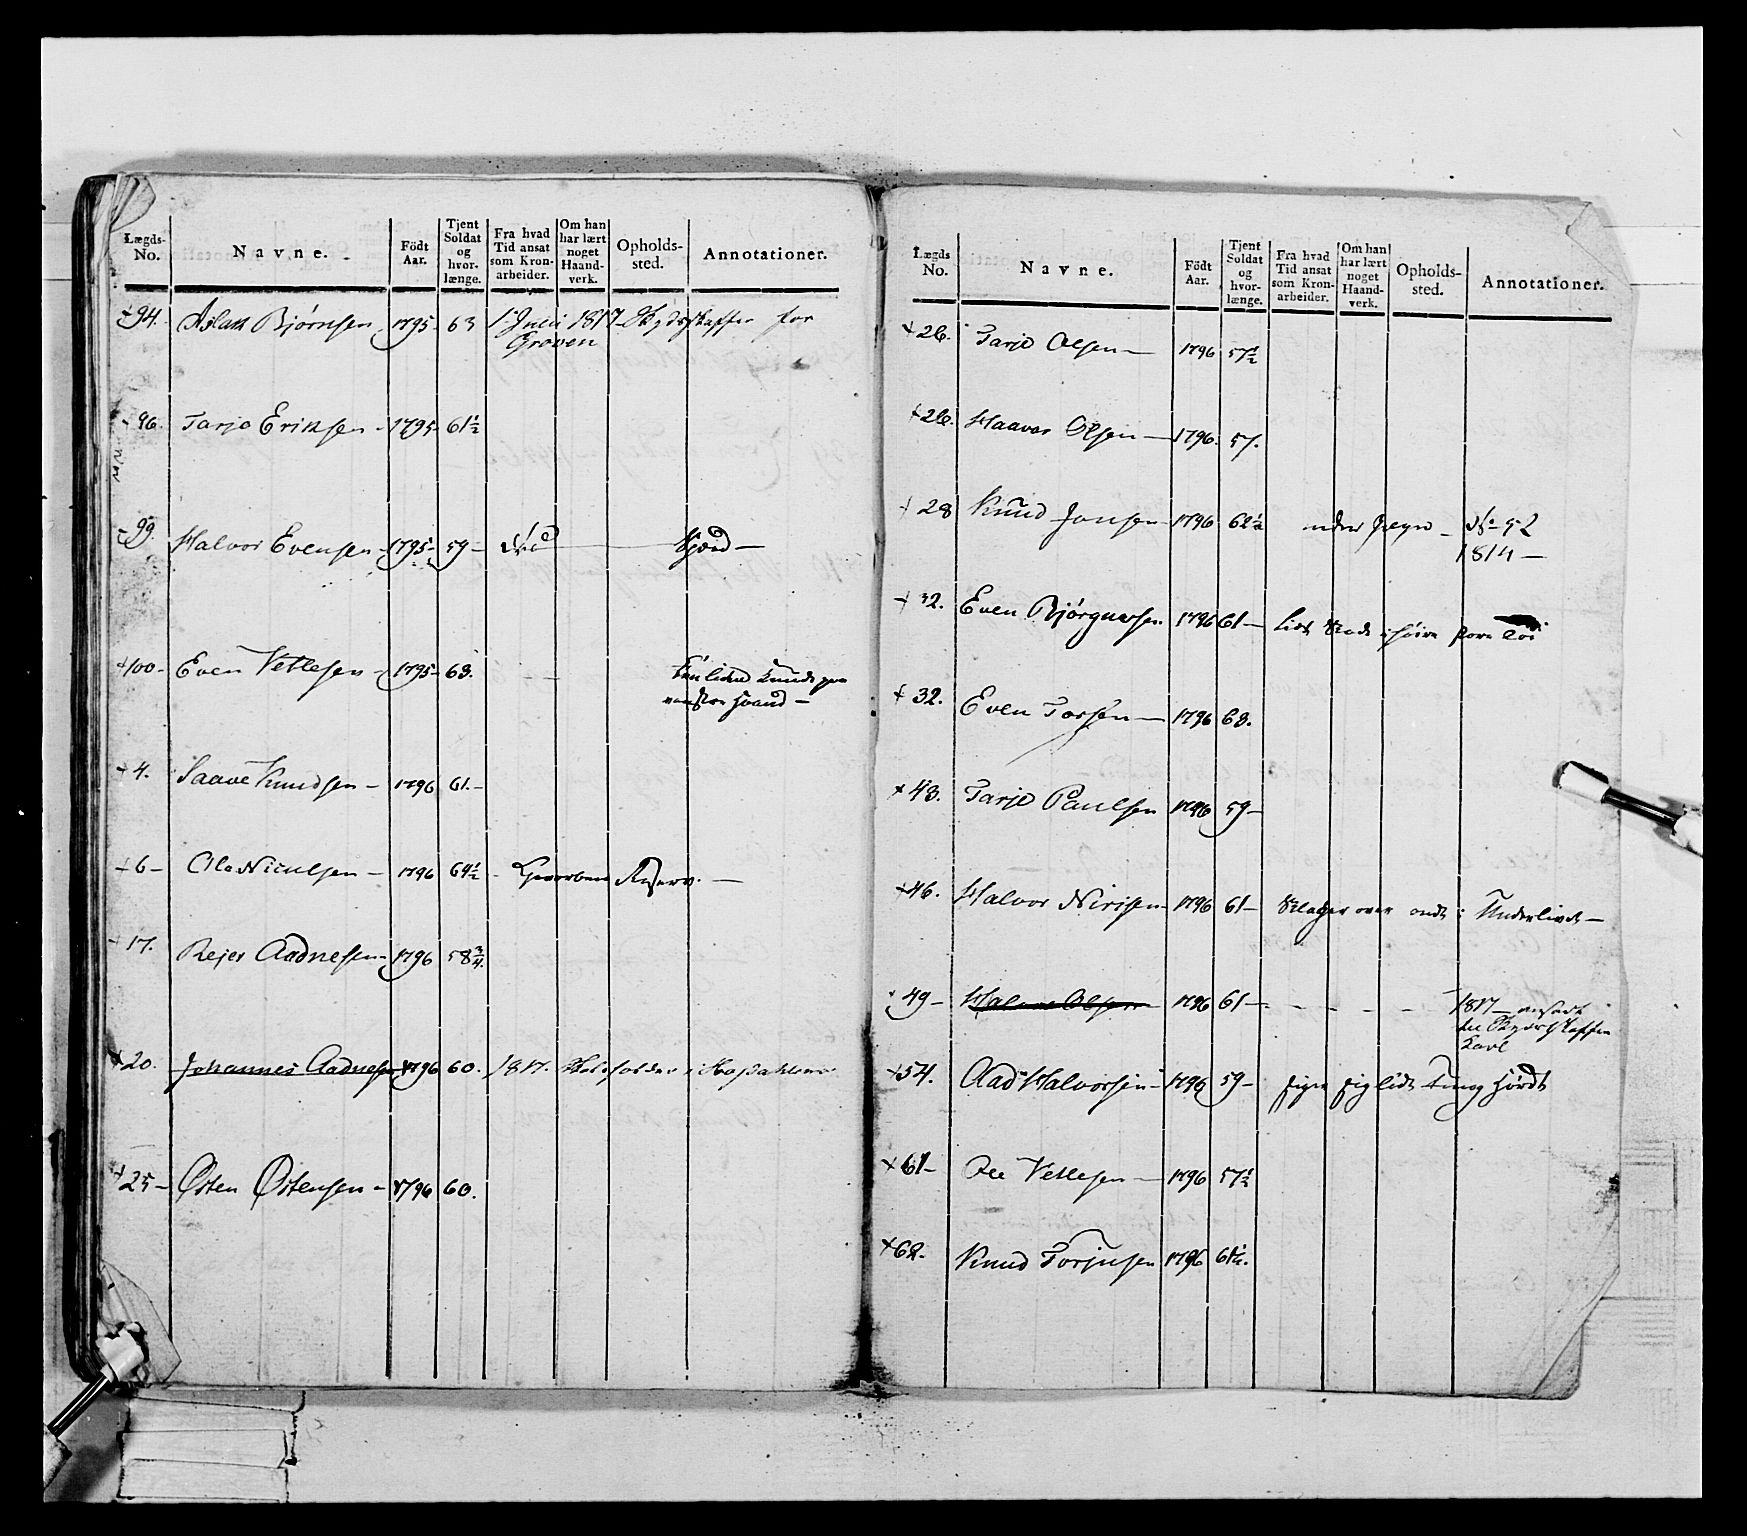 Lægds- No. Navne. Födt Aar. Tjent Soldat og hvor- længe. Fra hvad Tid ansat som Kron- arbeider. Om han har lært noget Haand- verk. Opholds- sted. Annotationer.
+94. Aslak Bjørnsen 1795 63 1 Julii 1817 Skydsskaffer for
Groven
+96. Tarje Eriksen 1795 61½
+99. Halvor Evensen 1795 59
+100 Even Vetlesen 1795 63. liden Knude paa
venstre Haand
+4. Saave Knudsen 1796 61.
+6 Ole Niculsen 1796 64½ Gevorben Reserv.
+17. Rejer Aadnesen 1796 58¾
+20. Johannes Aadnesen 1796 60. 1817. i
+25 Østen Østensen 1796 60.
Lægds No. Navne. Födt Aar. Tjent Soldat og hvor- længe. Fra hvad Tid ansat som Kron- arbeider. Om han har lært noget Haand- verk. Opholds- sted. Annotationer.
+26. Tarje Olsen 1796 57½
+26. Haavor Olsen 1796. 57.
+28 Knud Jonsen 1796 62½ No 52
1814
+32. Even 1796 61 i høire
+32. Even Torsen 1796 63.
+43. Tarje Paulsen 1796 59
+46. Halvor 1796 61 Klager over ondt i Underlivet
+49 Halvor Olsen 1796 61 1817 ansadt
til Skydsskaffer
Karl
+54. Aad Halvorsen 1796 59 siger sig lidt Tung Hørdt
+61 Ole Vetlesen 1796 57½
+62. Knud Torjusen 1796